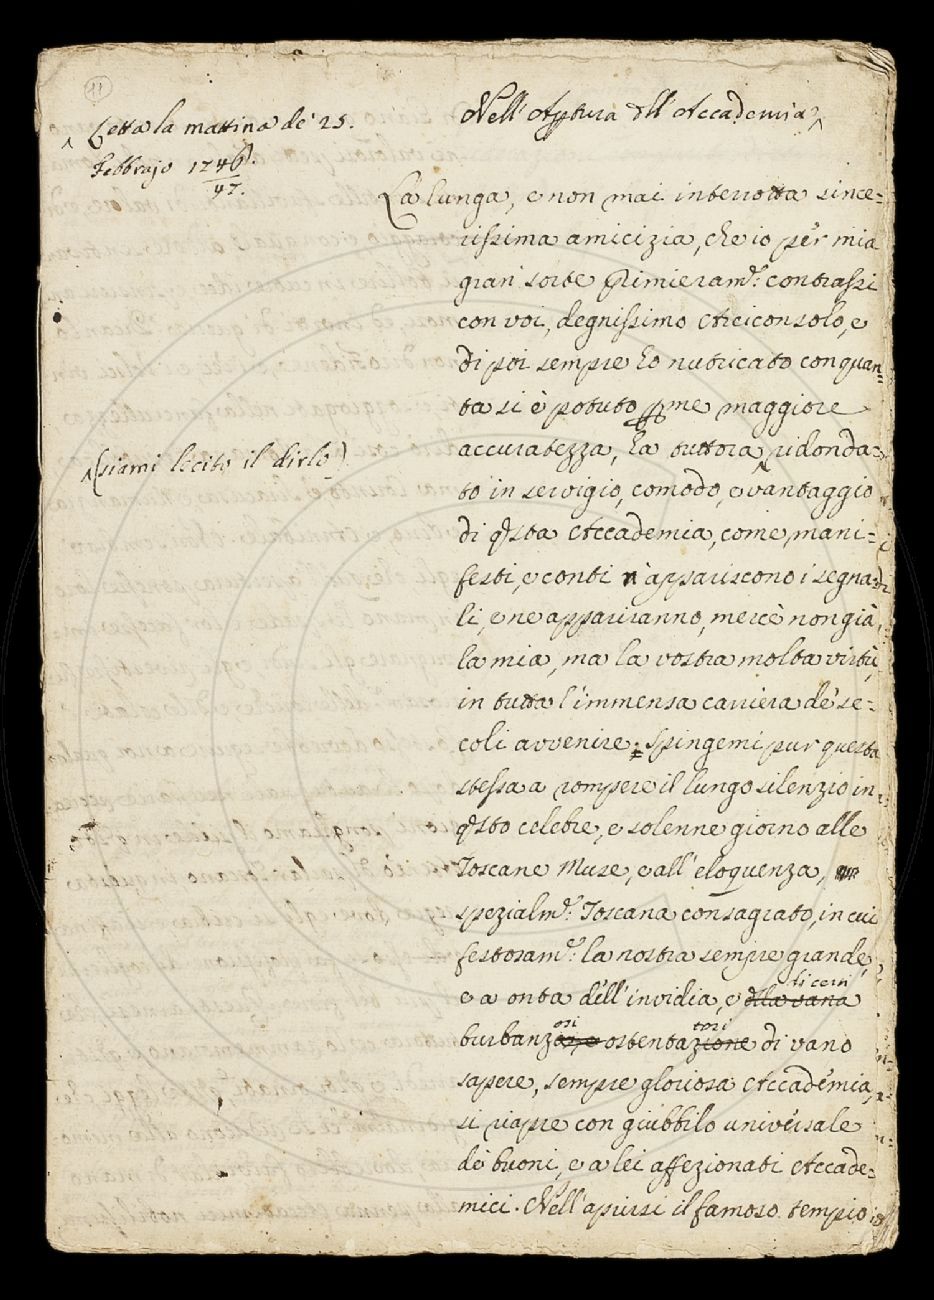 11
Nell'Aptura dll'Accademia
Letta la mattina de' 25.
Febbrajo 1746/47.
La lunga, e non mai interrotta since=
rissima amicizia, che io per mia
gran sorte primieramte: contrassi
con voi, degnissimo Arciconsolo, e
di poi sempre ho nutricato con quan=
ta si è potuto p me maggiore
accuratezza, ha tuttora ridonda=
(siami lecito il dirlo)
to in servigio, comodo, e vantaggio
di qsta Accademia, come mani=
festi, e conti n'appariscono i segna=
li, e ne appariranno, mercè non già
la mia, ma la vostra molta virtù,
in tutta l'immensa carriera de' se=
coli avvenire: spingemi pur questa
stessa a rompere il lungo silenzio in
qsto celebre, e solenne giorno alle
Toscane Muse, e all'eloquenza,
spezialmte: Toscana consagrato, in cui
festosamte: la nostra sempre grande,
e a onta dell'invidia, e dlla vana
burbanzosi ostentatori di vano
sapere, sempre gloriosa Accadémia,
si riapre con giubbilo universale
de' buoni, e a lei affezionati Accade=
mici. Nell'aprirsi il famoso tempio